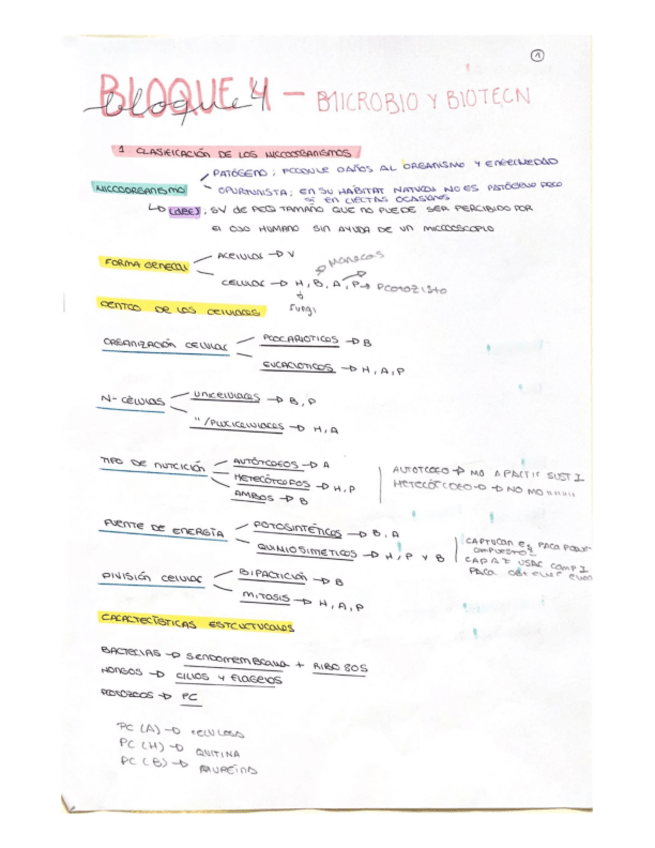 1
BLOQUE 4 - MICROBIO Y BIOTECN
bloque 4
1 CLASIFICACIÓN DE LOS MICROORGANISMOS
PATÓGENO: PRODUCE DAÑOS AL ORGANISMO Y ENFERMEDAD
MICROORGANISMO
OPURTUNISTA: EN SU HÁBITAT NATURAL NO ES PATÓGENO PERO
SÍ EN CIERTAS OCASIONES
(DEF): SV de PEQ TAMAÑO QUE NO PUEDE SER PERCIBIDO POR
El OJO HUMANO SIN AYUDA DE UN MICROSCOPIO
FORMA GENERAL
ACELULAR → V
MONERAS
CELULAR → H, B, A, P → PROTOZISTO
Fungi
DENTRO DE LOS CELULARES
ORGANIZACIÓN CELULAR
PROCARIOTICOS → B
EUCARIOTICOS → H, A, P
N- CÉLULAS
UNICELULARES → B, P
" /PLURICELULARES → H, A
TIPO DE NUTRICIÓN
AUTÓTROFOS → A
HETERÓTROFOS → H, P
AMBOS → B
AUTOTROFO → MO A PARTIR SUST I
HETERÓTROFO → NO MO """"
FUENTE DE ENERGÍA
FOTOSINTÉTICOS → B, A
QUIMIOSINTETICOS → H, P Y B
CAPTURAN E PARA
COMPUESTOS
USAR COMP I
PARA OBTENER
DIVISIÓN CELULAR
BIPARTICIÓN → B
MITOSIS → H, A, P
CARACTERÍSTICAS ESTRUCTURALES
BACTERIAS → SENDOMEMBRANA + RIBO 80S
HONGOS → CILIOS Y FLAGELOS
PROTOZOOS → PC
PC (A) → CELULOSA
PC (H) → QUITINA
PC (B) → MUREÍNA